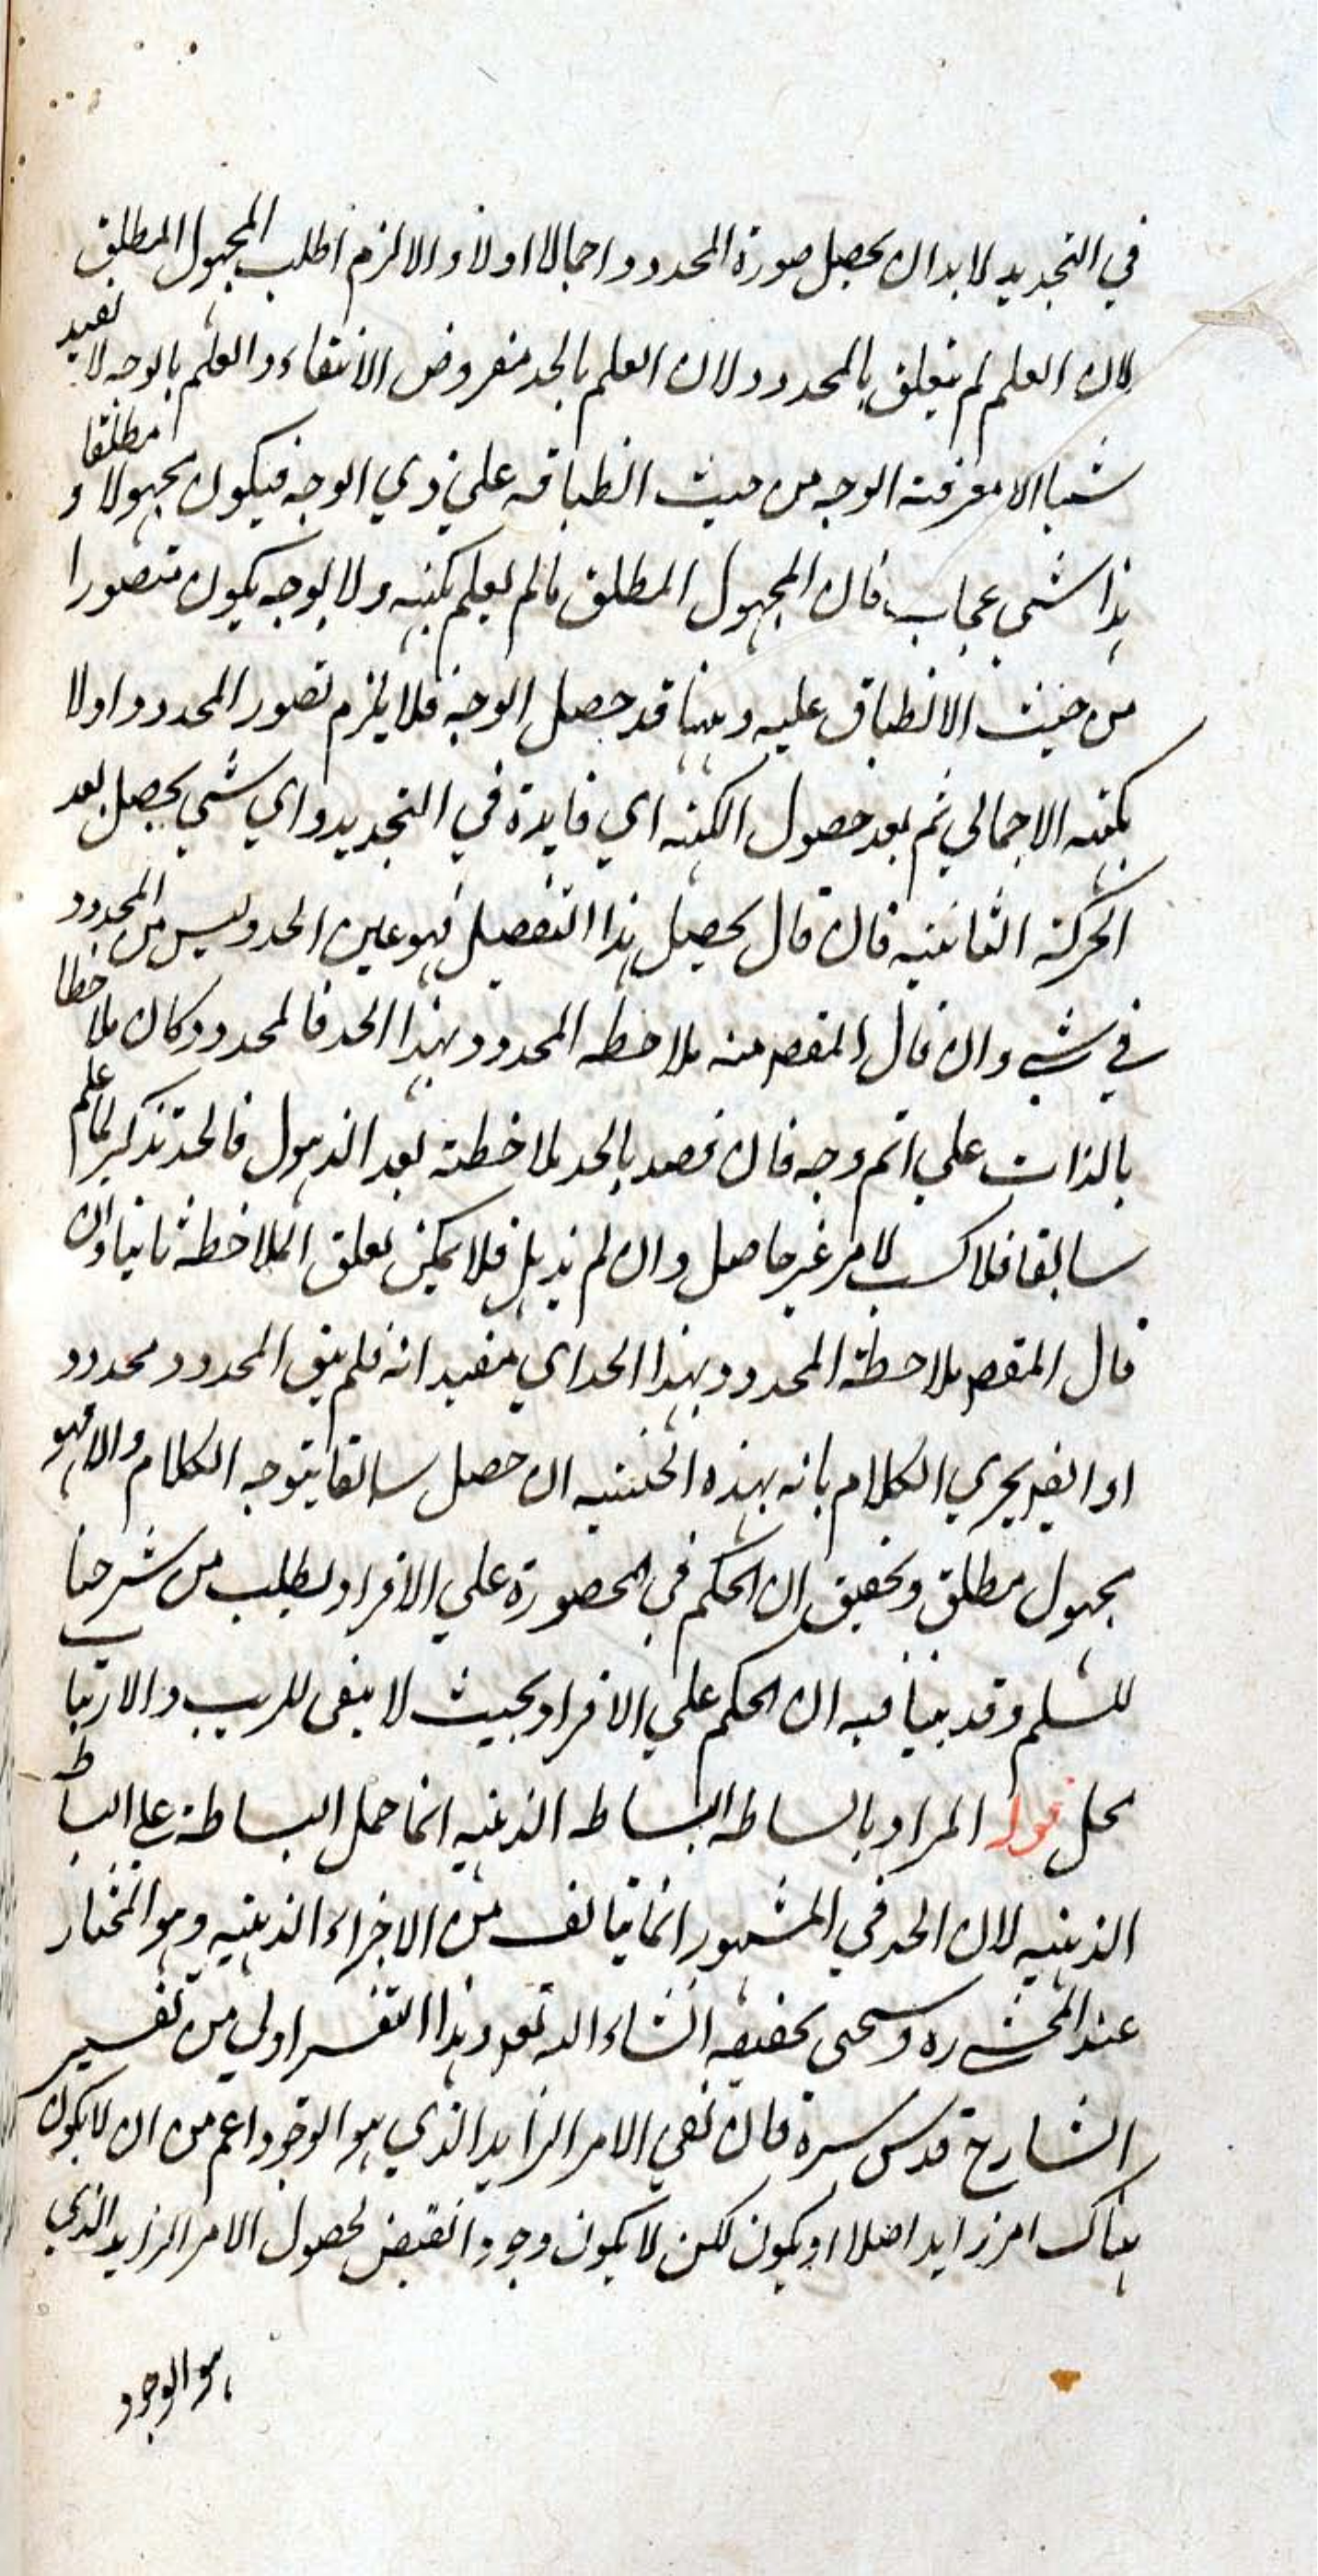 في التحديد لا بد ان يحصل صورة المحدود اجمالا اولا والا لزم طلب المجهول المطلق
لان العلم لم يتعلق بالمحدود لان العلم بالحد مفروض الانتفاء والعلم بالوجه لا يفيد
شيئا الا معرفة الوجه من حيث انطباقه علي ذي الوجه فيكون مجهولا مطلقا و
هذا شي عجاب فان المجهول المطلق ما لم يعلم بكنهه ولا بوجه يكون متصورا
من حيث الانطباق عليه وههنا قد حصل الوجه فلا يلزم تصور المحدود اولا
بكنهه الاجمالي ثم بعد حصول الكنه اي فايدة في التحديد واي شي يحصل بعد
الحركة الثانية فان قال يحصل هذا التفصيل فهو عين الحد وليس من المحدود
في شي وان قال المقصود منه ملاحظه المحدود بهذا الحد فالمحدود كان ملاحظا
بالذات علي اتم وجه فان قصد بالحد ملاحظته بعد الذهول فالحد تذكير لما علم
سابقا فلا كسب لامر غير حاصل وان لم يذهل فلا يمكن تعلق الملاحظة ثانيا وان
قال المقصود ملاحظة المحدود بهذا الحد اي مفيد انه فلم يبق المحدود محدود
او ايضا يجري الكلام بانه بهذه الحيثية ان حصل سابقا يتوجه الكلام والا فهو
مجهول مطلق وتحقيق ان الحكم في المحصورة علي الافراد يطلب من شرحنا
للسلم وقد بينا فيه ان الحكم علي الافراد بحيث لا يبقى للريب والارتياب
محل قوله المراد بالبساطه البساطه الذهنيه انما حمل البساطة علي البساطة
الذهنيه لان الحد في المشهور انما يتالف من الاجزاء الذهنيه وهو المختار
عند المحشي ره وسيجي تحقيقه انشاء الله تعالى وهذا التفسير اولي من تفسير
الشارح قدس سره فان نفي الامر الزايد الذي هو الوجود اعم من ان لا يكون
هناك امر زايد اصلا او يكون لكن لا يكون وجودا نقيض لحصول الامر الزايد الذي
هو الوجود